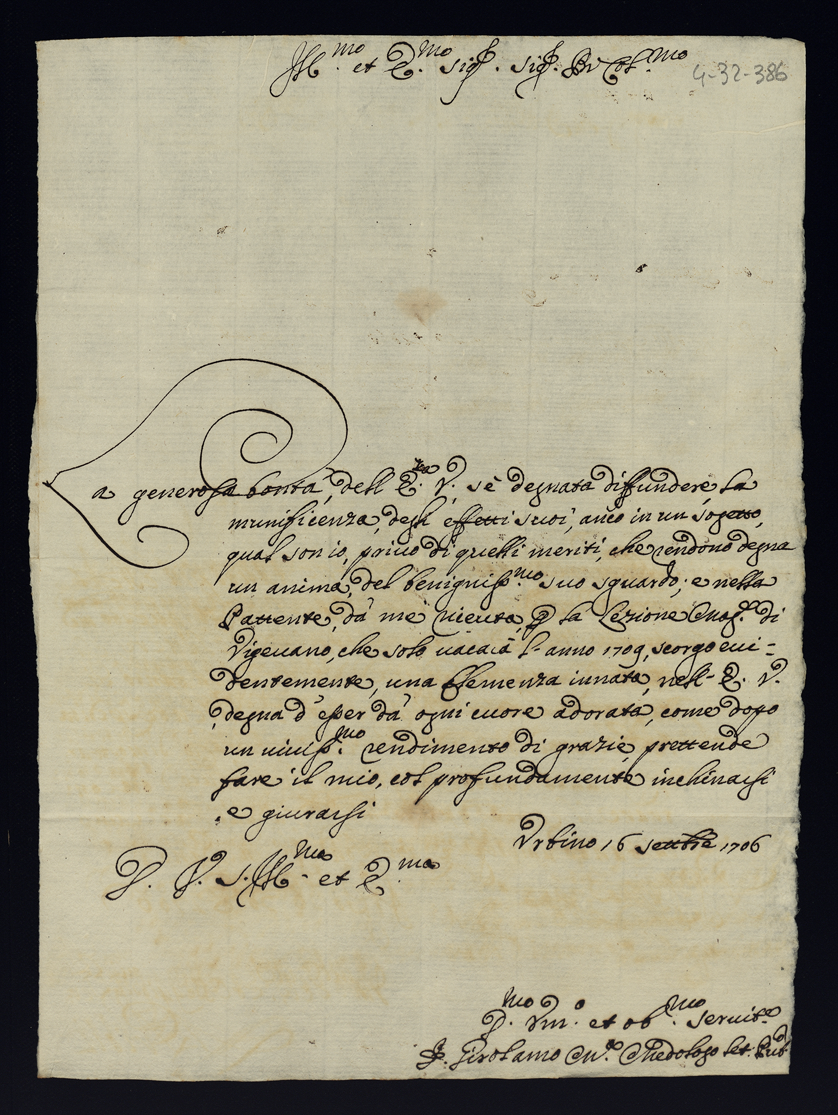 Ill.mo et E.mo Sig.r Sig.r P̄rō Col.mo
4-32-386
La generosa bontà, dell E.za V. s'è degnata diffundere, la
munificenza, degli effetti suoi, anco in un sogetto,
qual son io, privo di quelli meriti, che rendono degna
un anima, del beniguiss.mo suo sguardo, e nella
Pattente, dà me riceuta, p la Lezione Quag.le di
Vigevano, che solo uacarà l'anno 1709, scorgo eui=
dentemente, una Clemenza innata, nell' E. V.
degna d'esser dà ogni cuore adorata, come dopo
un uiuiss.mo rendimento di grazie, prettende
fare il mio, col profundamente inchinarsi
e giurarsi
Urbino 16 settbre 1706
D. V. S. Ill.ma et E.ma
D.mo Um.o et ob.mo seruit.e
F. Girolamo M.a Medolago let. Pub.